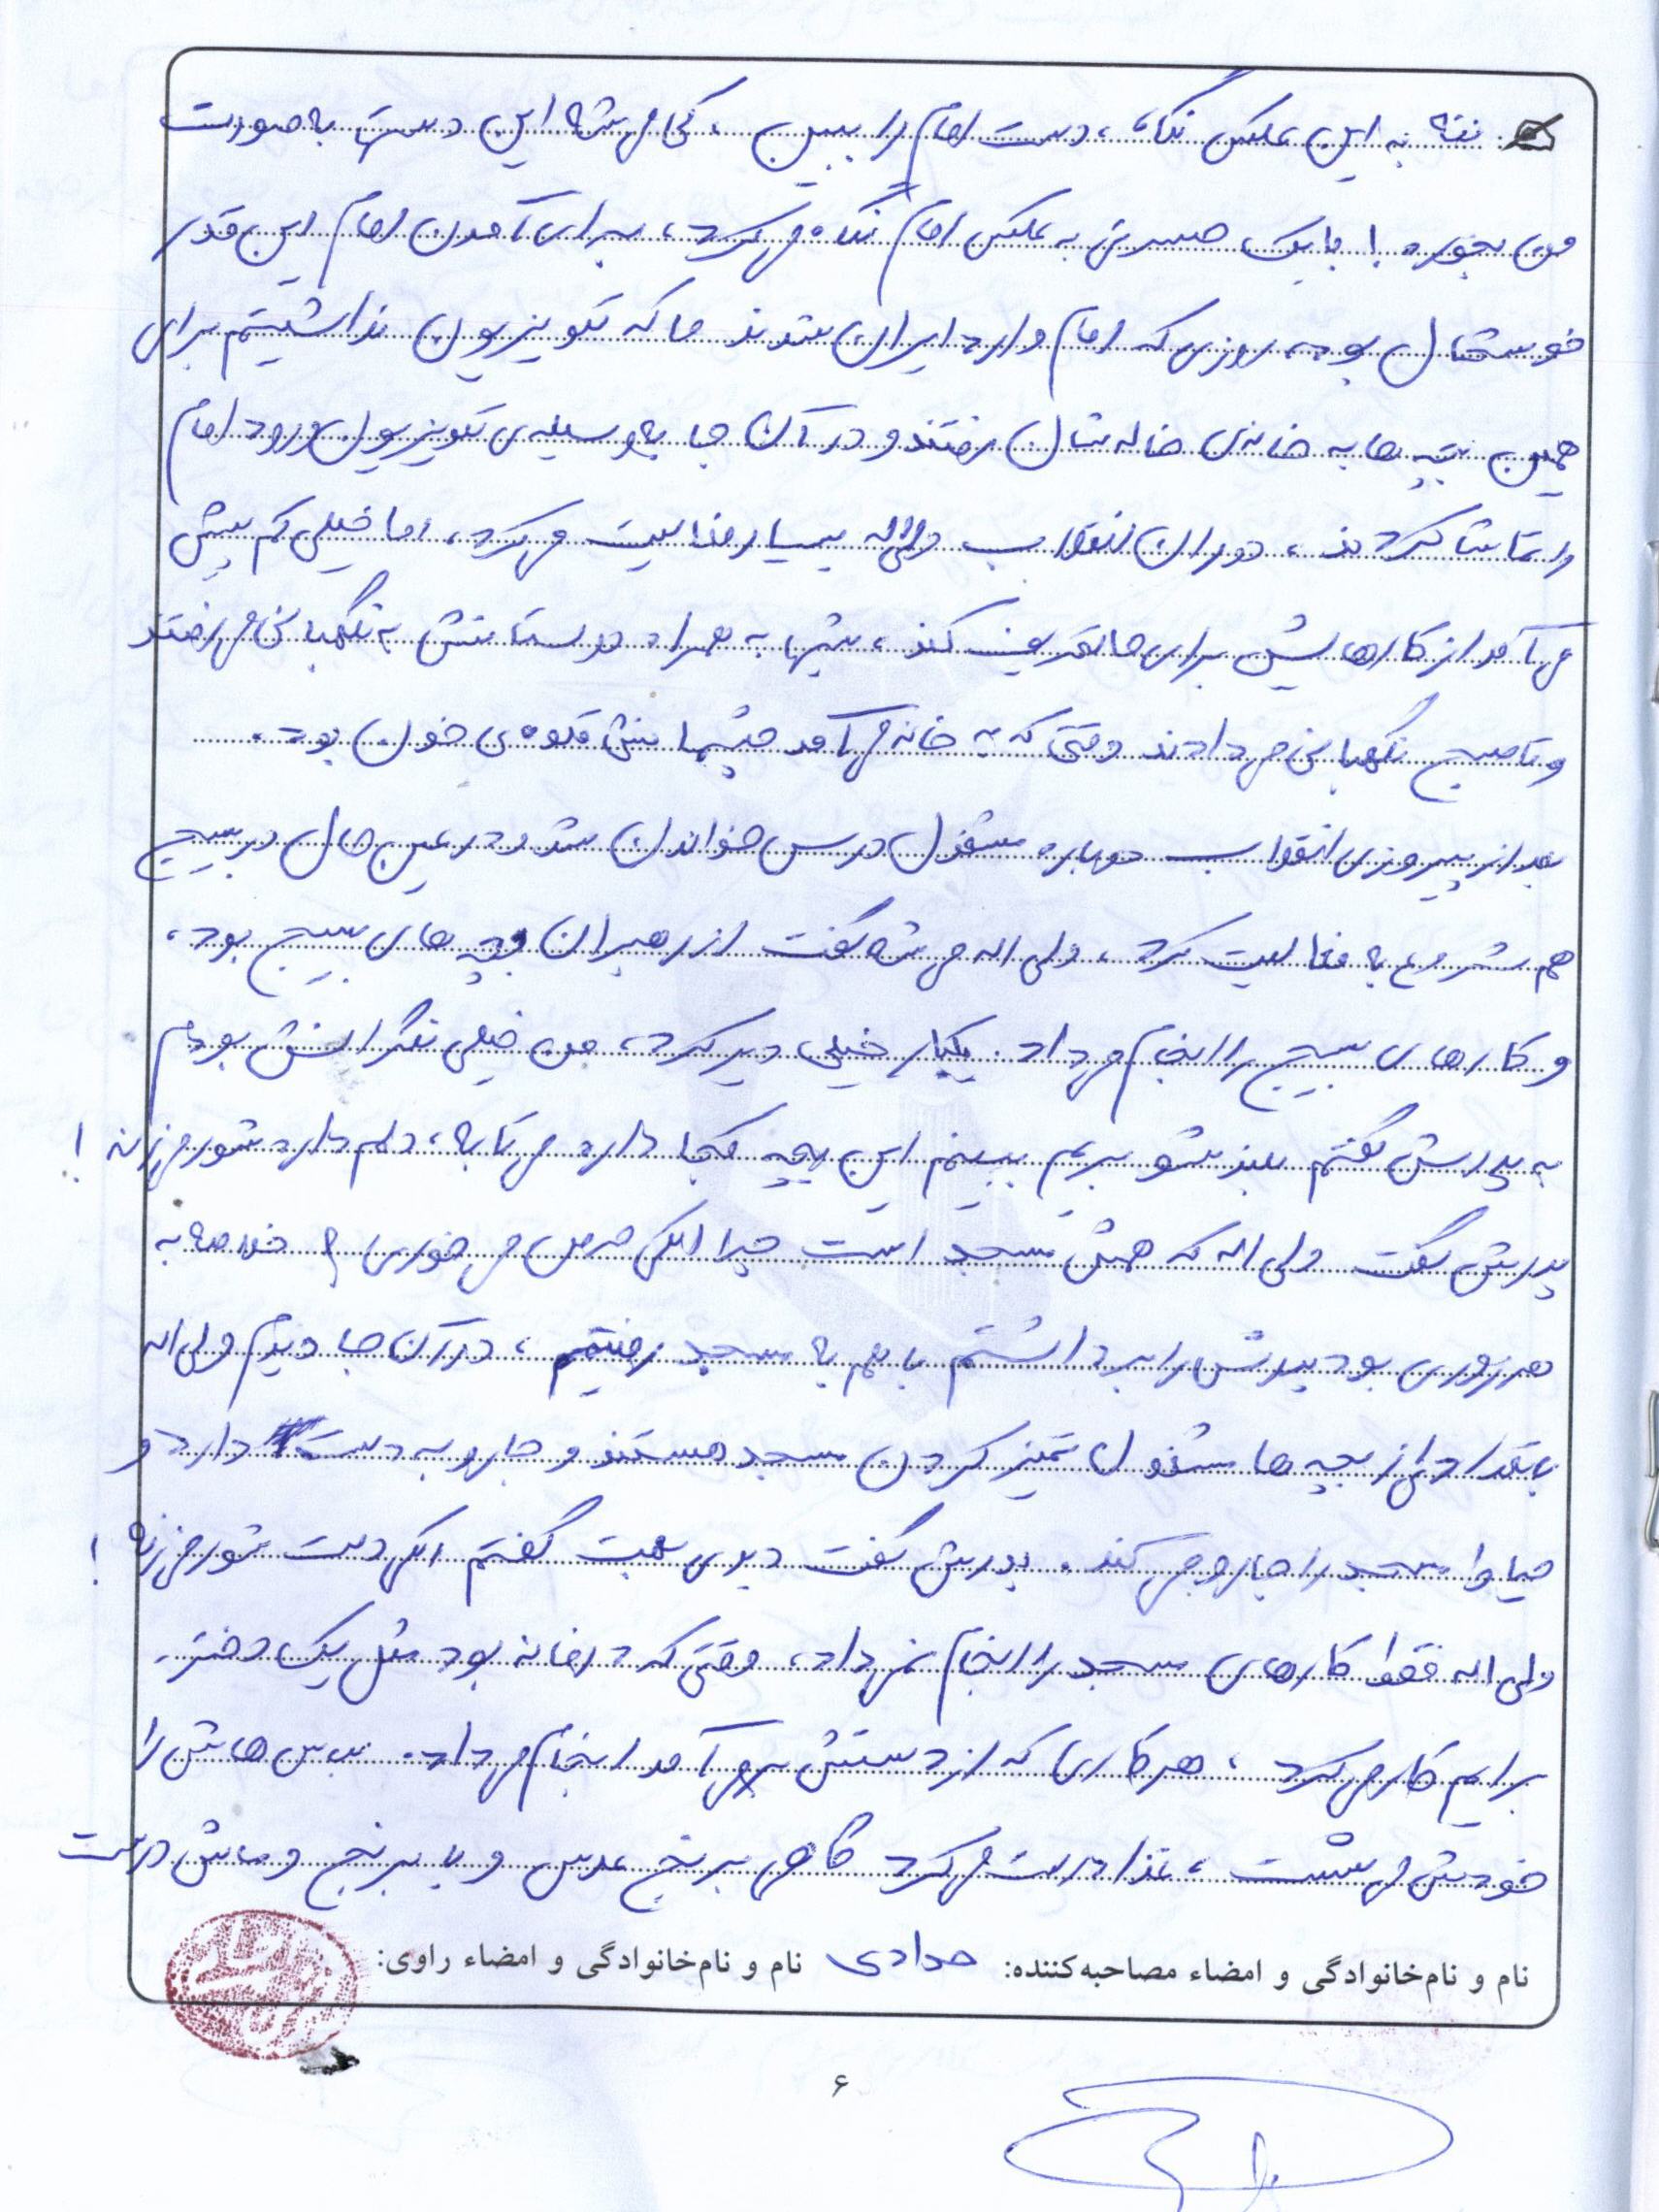 ننه به این عکس نگاه، دست امام را ببین، کی می شه این دستها به صورت
من بخوره! با یک حسرتی به عکس امام نگاه می کرد، برای آمدن امام این قدر
خوشحال بود، روزی که امام وارد ایران شدند ما که تلویزیون نداشتیم برای
همین بچه ها به خانه ی خاله شان رفتند و در آن جا به وسیله ی تلویزیون ورود امام
را تماشا کردند، دوران انقلاب ولی اله بسیار فعالیت می کرد، اما خیلی کم پیش
می آمد از کارهایش برای ما تعریف کند، شبها به همراه دوستانش به نگهبانی می رفتند
و تا صبح نگهبانی می دادند وقتی که به خانه می آمد چشمانش قلوه ی خون بود.
بعد از پیروزی انقلاب دوباره مشغول درس خواندن شد و در عین حال در بسیج
هم شروع به فعالیت کرد، ولی اله می شه گفت از رهبران بچه های بسیج بود،
و کارهای بسیج را انجام می داد. یکبار خیلی دیر کرد، من خیلی نگرانش بودم
به پدرش گفتم بلند شو بریم ببینم این بچه کجا داره می تابه، دلم داره شور می زنه!
پدرش گفت ولی اله که همش مسجد است چرا الکی حرص می خوری؟ خلاصه به
هر زوری بود پدرش را برداشتم با هم به مسجد رفتیم، در آن جا دیدم ولی اله
با تعدادی از بچه ها مشغول تمیز کردن مسجد هستند و جارو به دست دارد و
حیاط مسجد را جارو می کند. پدرش گفت دیدی بهت گفتم الکی دلت شور می زنه!
ولی اله فقط کارهای مسجد را انجام نمی داد، وقتی که در خانه بود مثل یک دختر
برایم کار می کرد، هر کاری که از دستش بر می آمد انجام می داد. لباس هایش را
خودش می شست، غذا درست می کرد گاهی برنج عدس و یا برنج و ماش درست
نام و نام‌خانوادگی و امضاء مصاحبه‌کننده: حدادی نام و نام‌خانوادگی و امضاء راوی:
۶